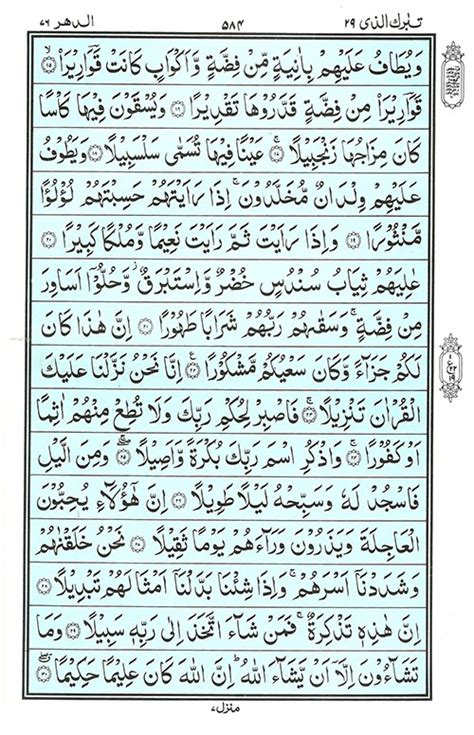 تبٰرك الذی ٢٩ ٥٨٤ الدھر ٧٦
وَيُطَافُ عَلَيْهِمْ بِاٰنِيَةٍ مِّنْ فِضَّةٍ وَّاَكْوَابٍ كَانَتْ قَوَارِيْرَا۠ ۝١٥
قَوَارِيْرَا۠ مِنْ فِضَّةٍ قَدَّرُوْهَا تَقْدِيْرًا ۝١٦ وَيُسْقَوْنَ فِيْهَا كَاْسًا
كَانَ مِزَاجُهَا زَنْجَبِيْلًا ۝١٧ عَيْنًا فِيْهَا تُسَمّٰى سَلْسَبِيْلًا ۝١٨ وَيَطُوْفُ
عَلَيْهِمْ وِلْدَانٌ مُّخَلَّدُوْنَ ۚ اِذَا رَاَيْتَهُمْ حَسِبْتَهُمْ لُؤْلُؤًا
مَّنْثُوْرًا ۝١٩ وَاِذَا رَاَيْتَ ثَمَّ رَاَيْتَ نَعِيْمًا وَّمُلْكًا كَبِيْرًا ۝٢٠
عٰلِيَهُمْ ثِيَابُ سُنْدُسٍ خُضْرٌ وَّاِسْتَبْرَقٌ ۡ وَّحُلُّوْۤا اَسَاوِرَ
مِنْ فِضَّةٍ ۚ وَسَقٰىهُمْ رَبُّهُمْ شَرَابًا طَهُوْرًا ۝٢١ اِنَّ هٰذَا كَانَ
لَكُمْ جَزَآءً وَّكَانَ سَعْيُكُمْ مَّشْكُوْرًا ۝٢٢ اِنَّا نَحْنُ نَزَّلْنَا عَلَيْكَ
الْقُرْاٰنَ تَنْزِيْلًا ۝٢٣ فَاصْبِرْ لِحُكْمِ رَبِّكَ وَلَا تُطِعْ مِنْهُمْ اٰثِمًا
اَوْ كَفُوْرًا ۝٢٤ وَاذْكُرِ اسْمَ رَبِّكَ بُكْرَةً وَّاَصِيْلًا ۝٢٥ وَمِنَ الَّيْلِ
فَاسْجُدْ لَهٗ وَسَبِّحْهُ لَيْلًا طَوِيْلًا ۝٢٦ اِنَّ هٰۤؤُلَآءِ يُحِبُّوْنَ
الْعَاجِلَةَ وَيَذَرُوْنَ وَرَآءَهُمْ يَوْمًا ثَقِيْلًا ۝٢٧ نَحْنُ خَلَقْنٰهُمْ
وَشَدَدْنَاۤ اَسْرَهُمْ ۚ وَاِذَا شِئْنَا بَدَّلْنَاۤ اَمْثَالَهُمْ تَبْدِيْلًا ۝٢٨
اِنَّ هٰذِهٖ تَذْكِرَةٌ ۚ فَمَنْ شَآءَ اتَّخَذَ اِلٰى رَبِّهٖ سَبِيْلًا ۝٢٩ وَمَا
تَشَآءُوْنَ اِلَّاۤ اَنْ يَّشَآءَ اللّٰهُ ؕ اِنَّ اللّٰهَ كَانَ عَلِيْمًا حَكِيْمًا ۝٣٠
منزل ٧